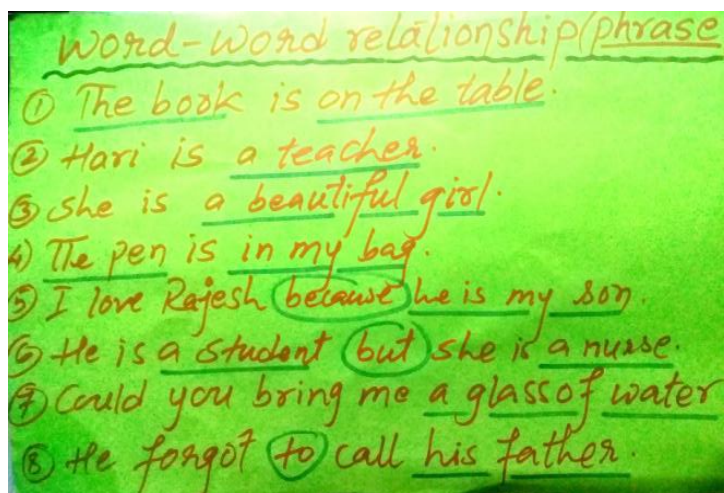 word-word relationship/phrase
① The book is on the table.
② Hari is a teacher.
③ She is a beautiful girl.
4) The pen is in my bag.
⑤ I love Rajesh because he is my son.
⑥ He is a student but she is a nurse.
⑦ Could you bring me a glass of water
⑧ He forgot to call his father.